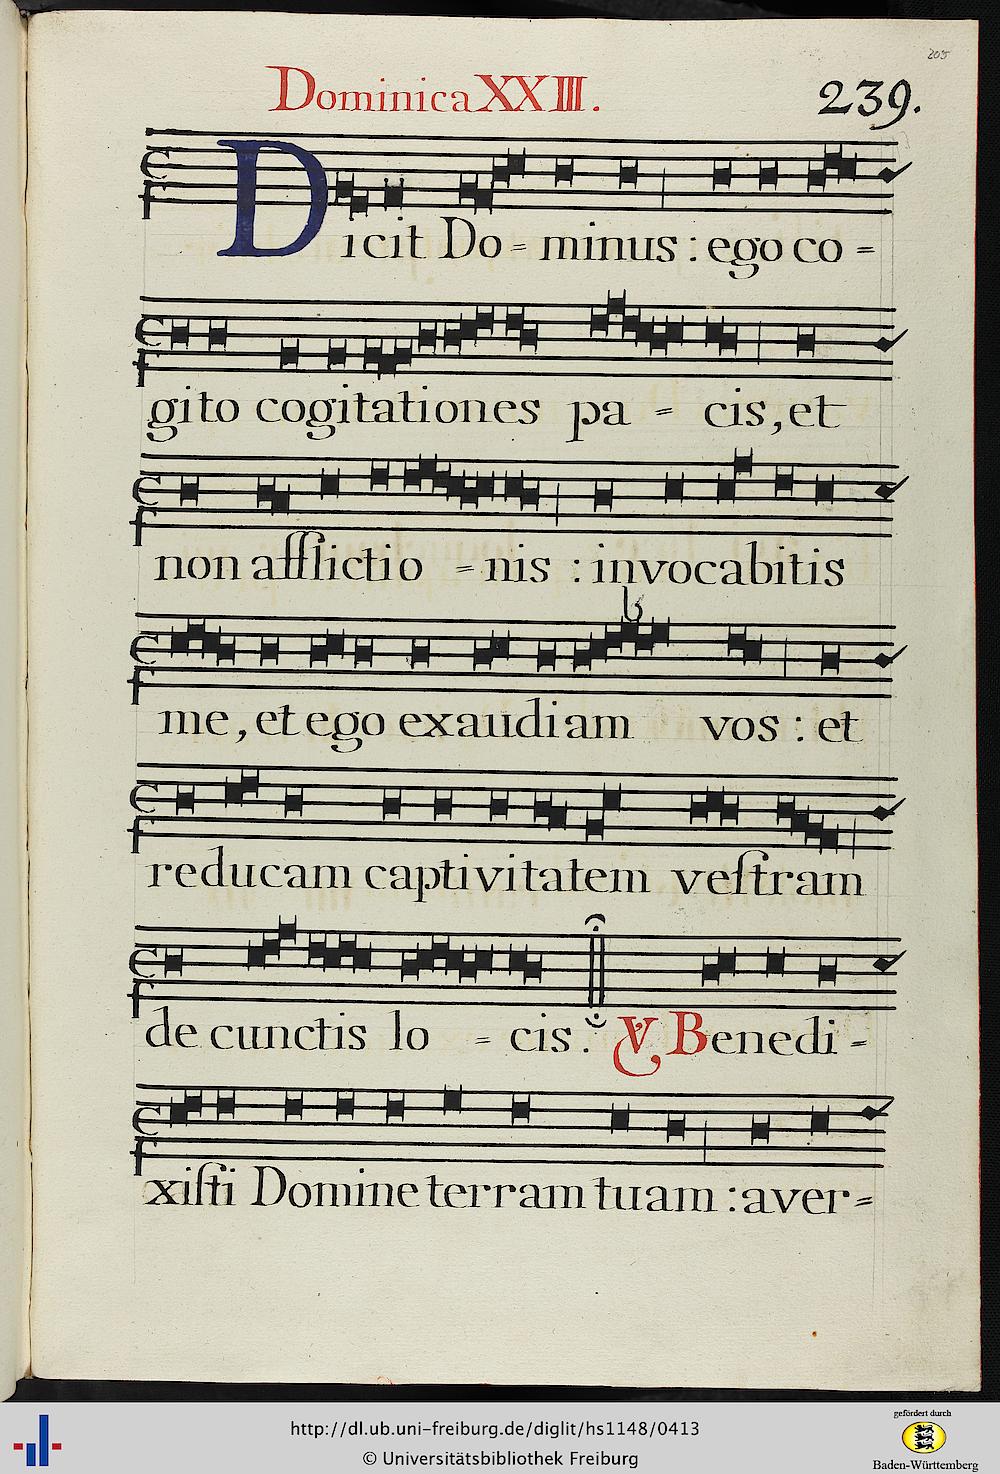 205
Dominica XXIII.
239.
Dicit Do = minus : ego co =
gito cogitationes pa = cis, et
non afflictio = nis : invocabitis
me, et ego exaudiam vos : et
reducam captivitatem veſtram
de cunctis lo = cis. ℣ Benedi =
xiſti Domine terram tuam : aver =
http://dl.ub.uni-freiburg.de/diglit/hs1148/0413
© Universitätsbibliothek Freiburg
gefördert durch
Baden-Württemberg